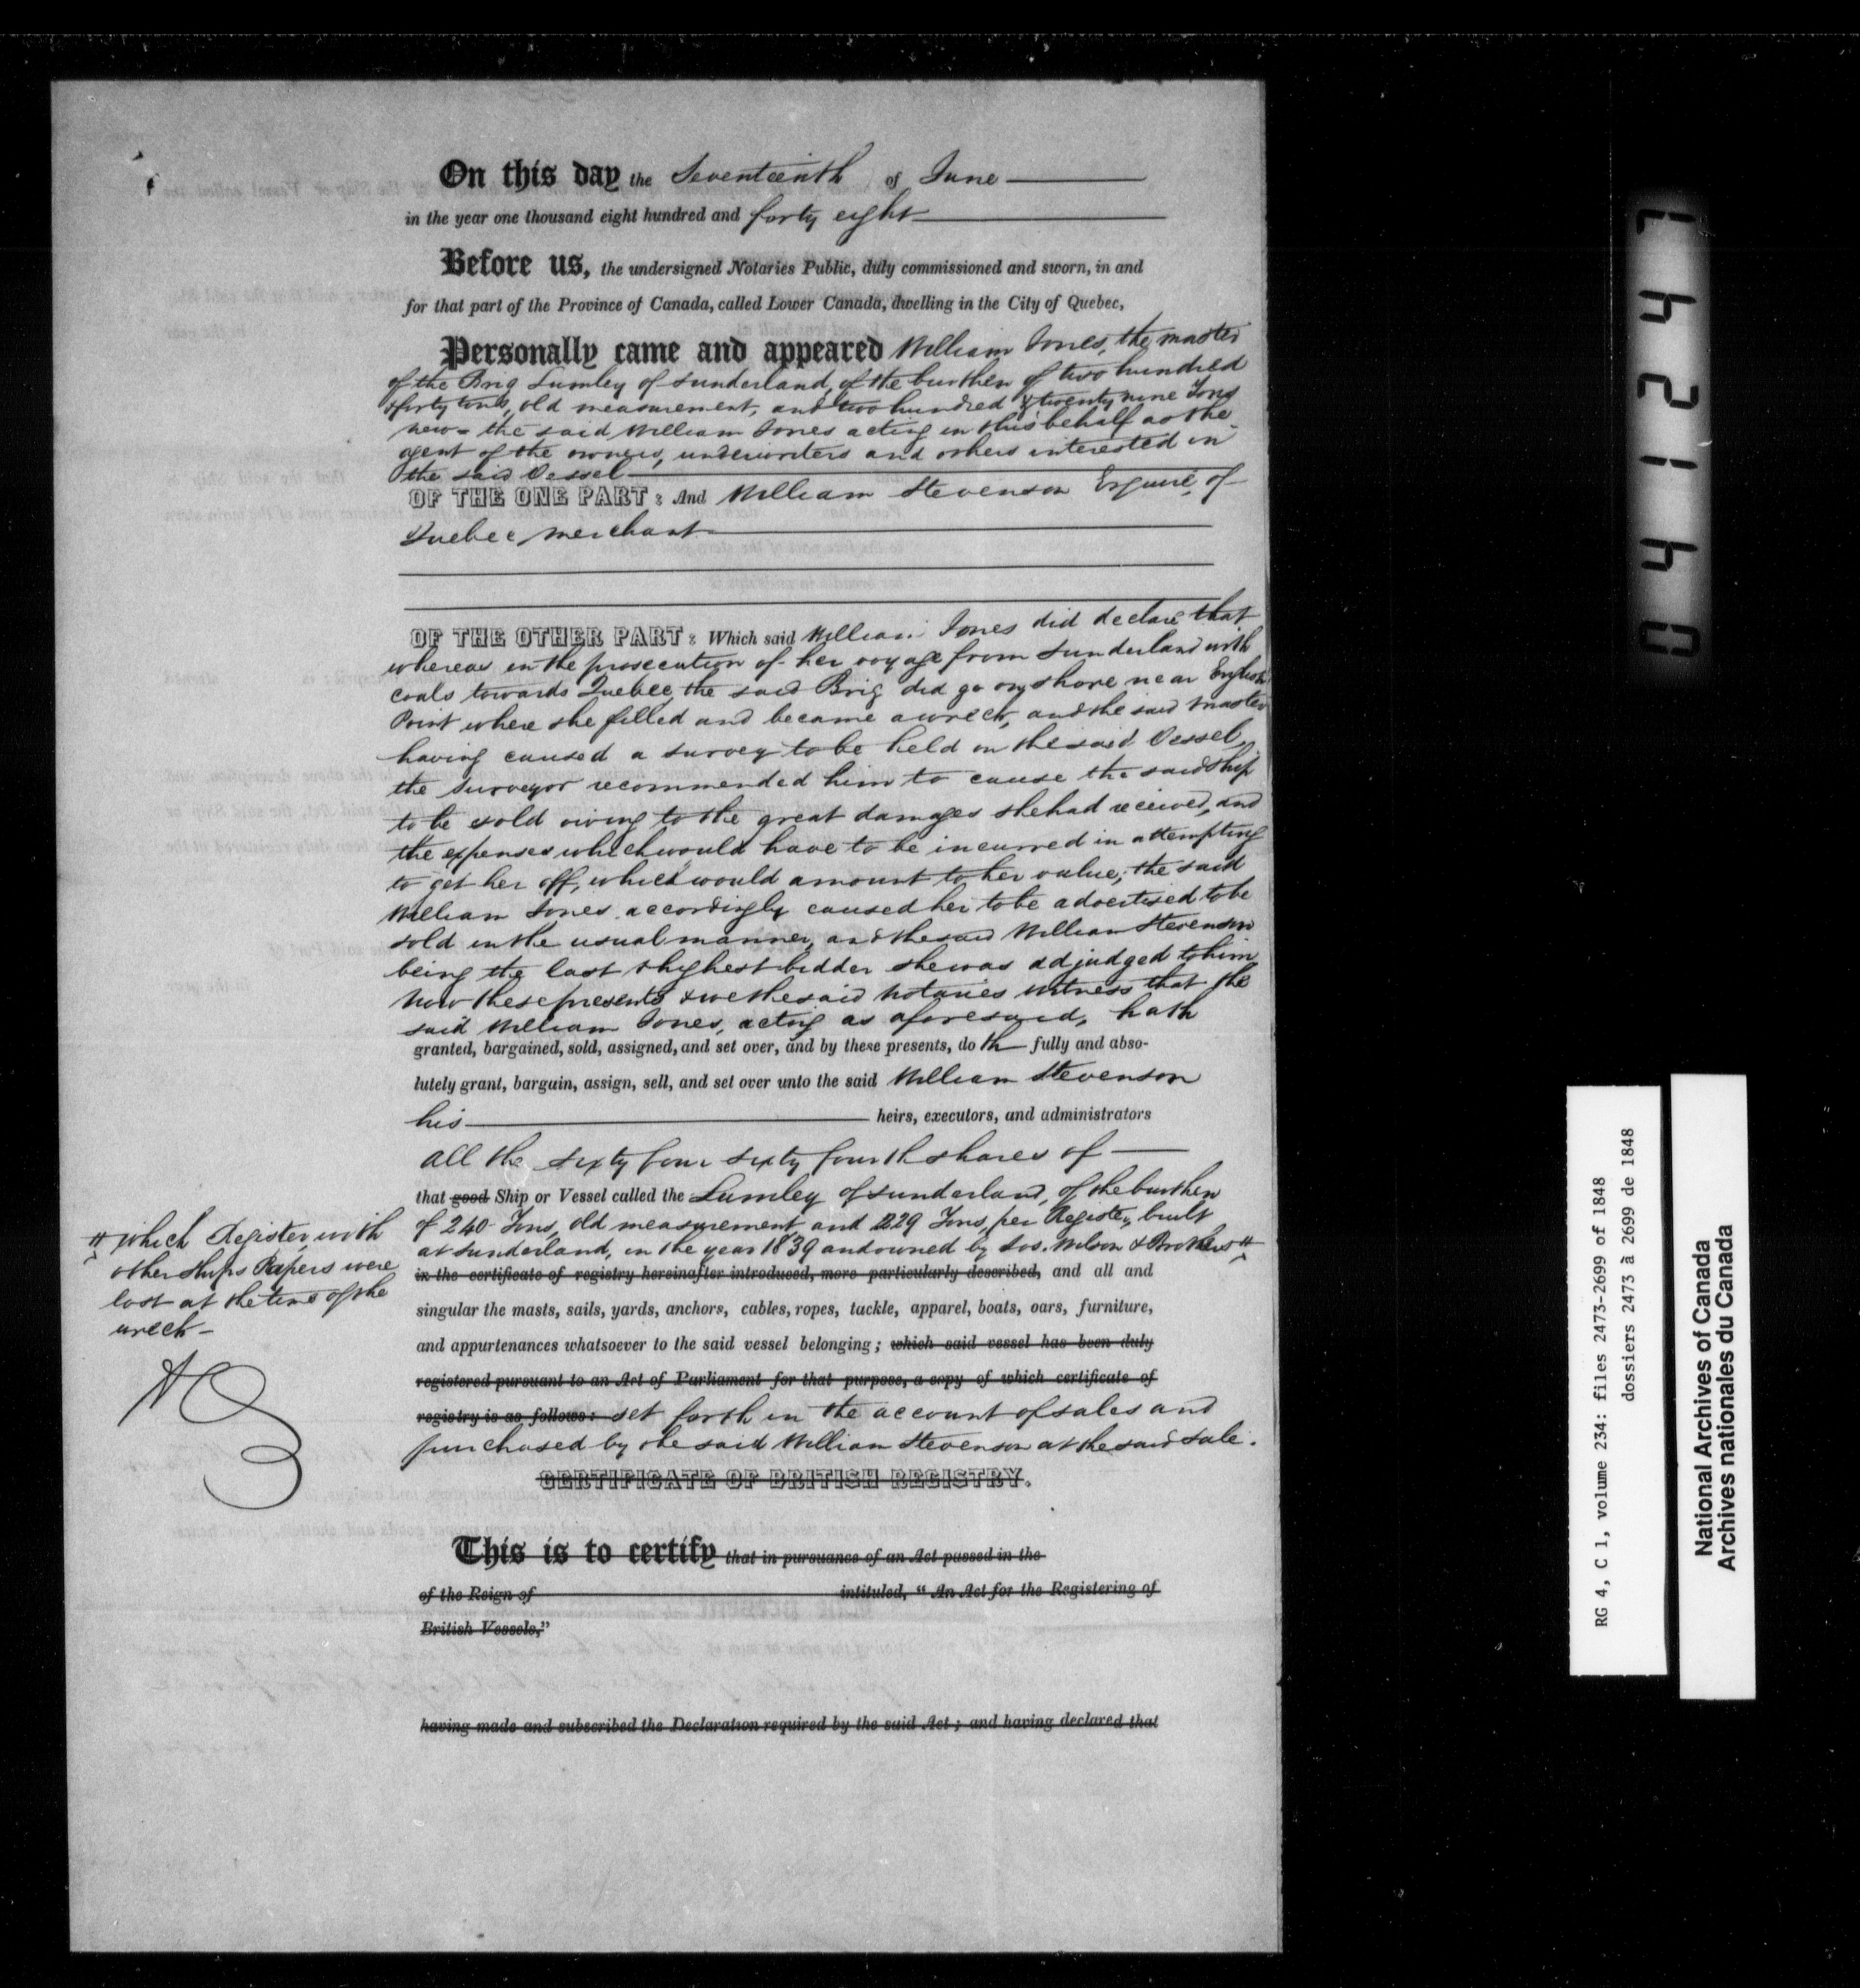 On this day the Seventeenth of June
in the year one thousand eight hundred and forty eight
Before us, the undersigned Notaries Public, duly commissioned and sworn, in and
for that part of the Province of Canada, called Lower Canada, dwelling in the City of Quebec,
Personally came and appeared William Jones, the master
of the Brig Lumley of Sunderland, of the burthen of two hundred
& forty tons, old measurement, and two hundred & twenty nine Tons
new - the said William Jones acting in this behalf as the
agent of the owners, underwriters and others interested in
the said Vessel
OF THE ONE PART: And William Stevenson Esquire, of
Quebec, merchant
OF THE OTHER PART: Which said William Jones did declare that
whereas in the prosecution of her voyage from Sunderland with
coals towards Quebec, the said Brig did go on shore near English
Point where she filled and became a wreck, and the said master
having caused a survey to be held on the said Vessel,
the surveyor recommended him to cause the said Ship
to be sold owing to the great damages she had received, and
the expenses which would have to be incurred in attempting
to get her off, which would amount to her value; the said
William Jones accordingly caused her to be advertised to be
sold in the usual manner, and the said William Stevenson
being the last & highest bidder she was adjudged to him
Now these presents & we the said Notaries witness that the
said William Jones, acting as aforesaid, hath
granted, bargained, sold, assigned, and set over, and by these presents, do th fully and abso-
lutely grant, bargain, assign, sell, and set over unto the said William Stevenson
his heirs, executors, and administrators
all the sixty four sixty fourth shares of
that good Ship or Vessel called the Lumley of Sunderland, of the burthen
of 240 Tons, old measurement and 229 Tons, per Register, built
at Sunderland, in the year 1839 and owned by Jos. Wilson & Brothers #
in the certificate of registry hereinafter introduced, more particularly described, and all and
singular the masts, sails, yards, anchors, cables, ropes, tackle, apparel, boats, oars, furniture,
and appurtenances whatsoever to the said vessel belonging; which said vessel has been duly
registered pursuant to an Act of Parliament for that purpose, a copy of which certificate of
registry is as follows: set forth in the account of sales and
purchased by the said William Stevenson at the said sale.
CERTIFICATE OF BRITISH REGISTRY.
This is to certify that in pursuance of an Act passed in the
of the Reign of intituled, "An Act for the Registering of
British Vessels,"
having made and subscribed the Declaration required by the said Act; and having declared that
# which Register, with
other Ships Papers were
lost at the time of the
wreck -
042124
RG 4, C 1, volume 234: files 2473-2699 of 1848
dossiers 2473 à 2699 de 1848
National Archives of Canada
Archives nationales du Canada